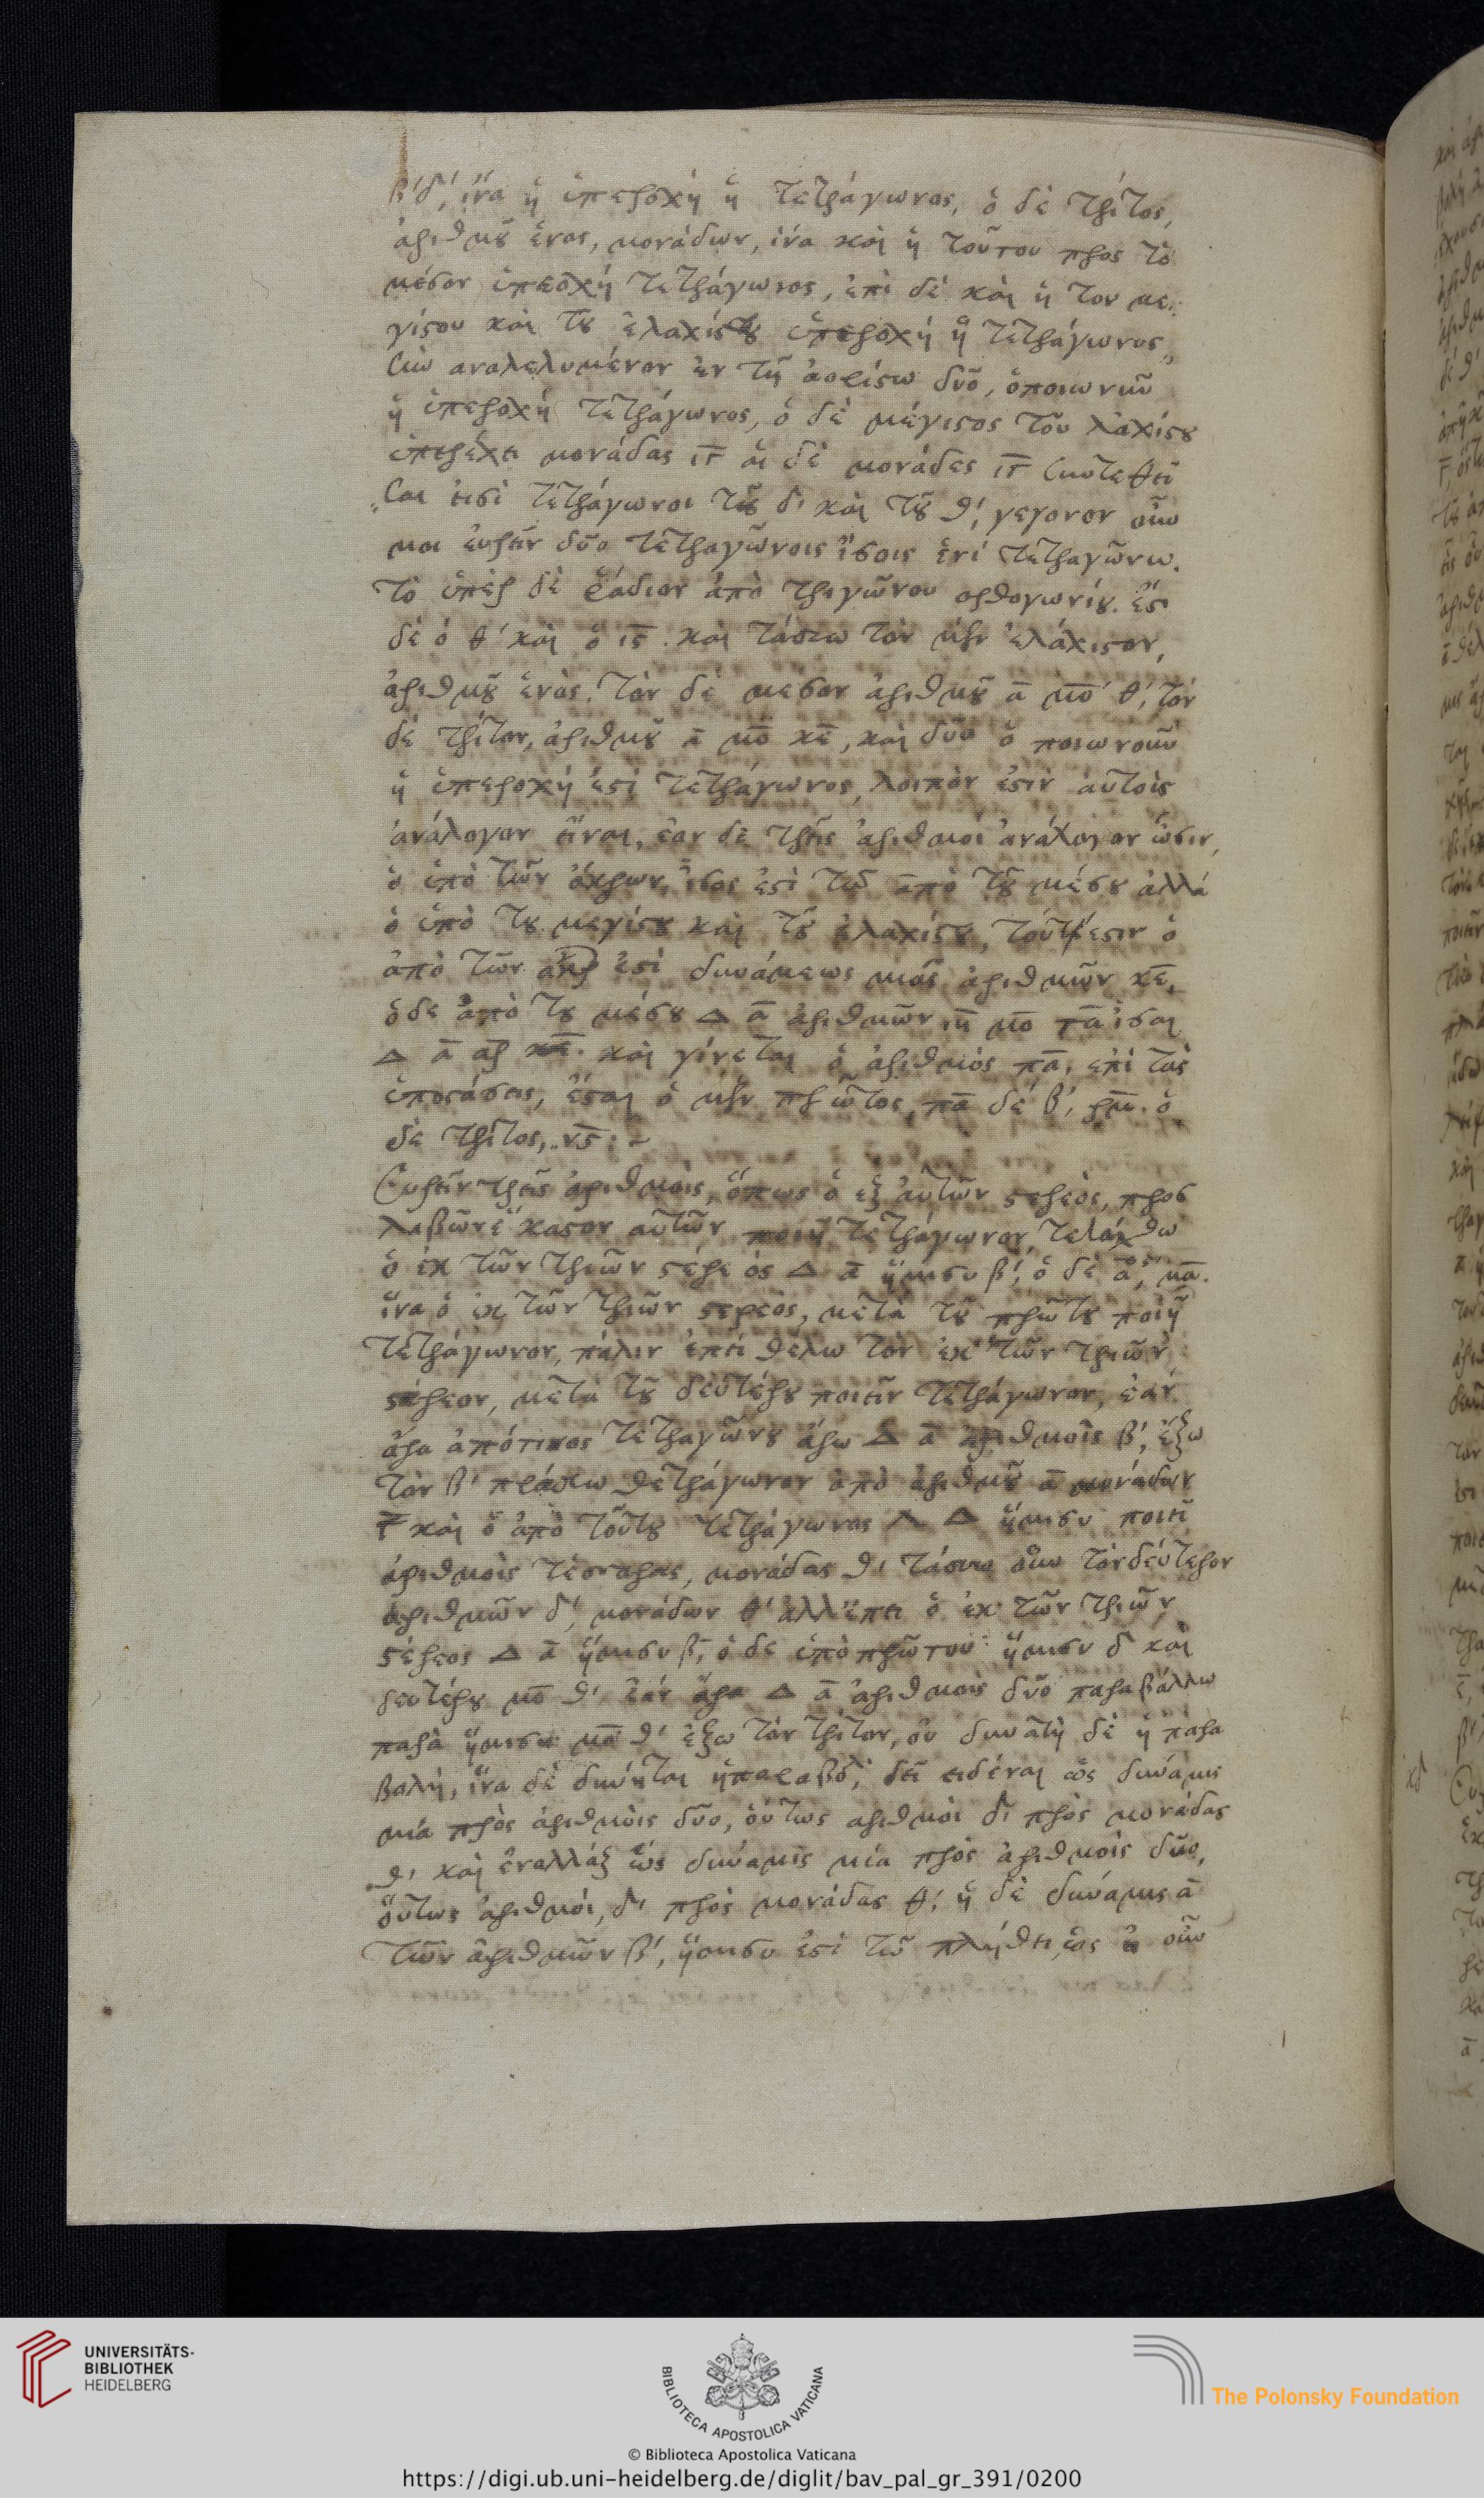 β΄ δ΄, ἵνα ἡ ὑπεροχὴ ᾖ τετράγωνος, ὁ δὲ τρίτος,
ἀριθμοῦ ἑνὸς, μονάδων, ἵνα καὶ ἡ τούτου προς τὸ
μέσον ὑπεροχή τετράγωνος, ἐπὶ δὲ καὶ ἡ του με
γίστου καὶ τοῦ ἐλαχίστου ὑπεροχὴ ᾖ τετράγωνος,
αναλελυμένον ἐν τῇ ἀορίστω δύο, ὁποιωνοῦν
ἡ ὑπεροχὴ τετράγωνος, ὁ δὲ μέγιστος τοῦ λαχίστου
ὑπερέχει μονάδας αἱ δὲ μονάδες συντεθεῖ
σαι εἰσὶ τετράγωνοι τοῦ δ΄ καὶ τοῦ θ΄, γεγονον οὖν
μοι εὑρεῖν δύο τετραγώνοις ἴσοις ἑνὶ τετραγώνω.
τὸ ὑπὲρ δὲ ῥάδιον ἀπὸ τριγώνου ορθογωνίου. ἔστι
δὲ ὁ θ΄ καὶ ὁ ις. καὶ τάσσω τὸν μὲν ἐλάχιστον,
ἀριθμοῦ ἑνὸς. τὸν δὲ μεσον ἀριθμοῦ α μο θ΄, τὸν
δὲ τρίτον, ἀριθμοῦ α μο κε, καὶ δύο ὁ ποιωνοῦν
ἡ ὑπεροχὴ ἐστὶ τετράγωνος, λοιπὸν ἐστὶν αὐτοὶς
ἀνάλογον εἶναι, ἐαν δὲ τρεῖς ἀριθμοὶ ἀνάλογον ὦσιν,
ὁ ὑπὸ τῶν ἄκρων, ἴσος ἐστὶ τῶ ἀπὸ τοῦ μέσου ἀλλά
ὁ ὑπὸ του μεγίστου καὶ τοῦ ἐλαχίστου, τουτέστιν ὁ
ἀπὸ τῶν ἐστὶ δυνάμεως μιᾶς ἀριθμῶν κε,
ὁ δε ἀπὸ του μέσου Δ α ἀριθμῶν ιη μο πα ἴσαι
Δ α αρ κε. καὶ γίνεται ὁ ἀριθμὸς πα, επὶ τὰς
ὑποστάσεις, ἔσται ὁ μὲν πρῶτος, πα δὲ β΄, ὁ
δὲ τρίτος,
Εὑρεῖν τρεῖς ἀριθμοὶς, ὅπως ὁ ἐξ αὐτῶν στερεὸς, προς
λαβῶν ἕκαστον αὐτῶν ποιῇ τετράγωνον, τετάχθω
ὁ ἐκ τῶν τριῶν στερεὸς Δ α ἥμισυ β΄, ὁ δὲ α, μα.
ἵνα ὁ ἐκ τῶν τριῶν στερεὸς, μετὰ τοῦ πρώτου ποιῇ
τετράγωνον, πάλιν ἐπεὶ θέλω τὸν ἐκ τῶν τριῶν
στέρεον, μετὰ τοῦ δευτέρου ποιεῖν τετράγωνον, ἐὰν
ἄρα ἀπότινος τετραγώνου ἄρω Δ α ἀριθμοὶς β΄, ἕξω
τὸν β΄ πλάσσω θετράγωνον ἀπὸ ἀριθμοῦ α μονάδων
γ καὶ ὁ ἀπὸ τοῦτου τετράγωνος Λ Δ ἥμισυ ποιεῖ
ἀριθμοὶς τέσσαρας, μονάδας θ΄ τάσσω οὖν τὸν δεύτερον
ἀριθμῶν δ΄, μονάδων θ΄ ἀλλ' ἔπει ὁ ἐκ τῶν τριῶν
στέρεος Δ α ἥμισυ β, ὁ δε ὑπὸ πρῶτου ἥμισυ δ καὶ
δευτέρου μο θ΄ ἐὰν ἄρα Δ α ἀριθμοὶς δύο παραβάλλω
παρὰ ἥμισυ μο θ΄ ἕξω τὸν τρίτον, οὐ δυνατὴ δὲ ἡ παρα
βολὴ, ἵνα δὲ δυνήται ἡ παραβολ, δεῖ ειδέναι ὡς δυνάμις
μιά πρὸς ἀριθμὸις δύο, οὕτως αριθμὸι δ΄ πρὸς μονάδας
θ΄ καὶ ἐναλλάξ ὡς δυνάμις μία πρὸς ἀριθμοὶς δύο,
οὕτως ἀριθμοὶ, δ΄ πρὸς μονάδας θ΄, ἡ δὲ δυνάμις α
τῶν ἀριθμῶν β΄, ἥμισυ ἐστὶ τῶ πλήθει, ὡς οὖν
κδ
UNIVERSITÄTS-
BIBLIOTHEK
HEIDELBERG
BIBLIOTECA APOSTOLICA VATICANA
The Polonsky Foundation
© Biblioteca Apostolica Vaticana
https://digi.ub.uni-heidelberg.de/diglit/bav_pal_gr_391/0200